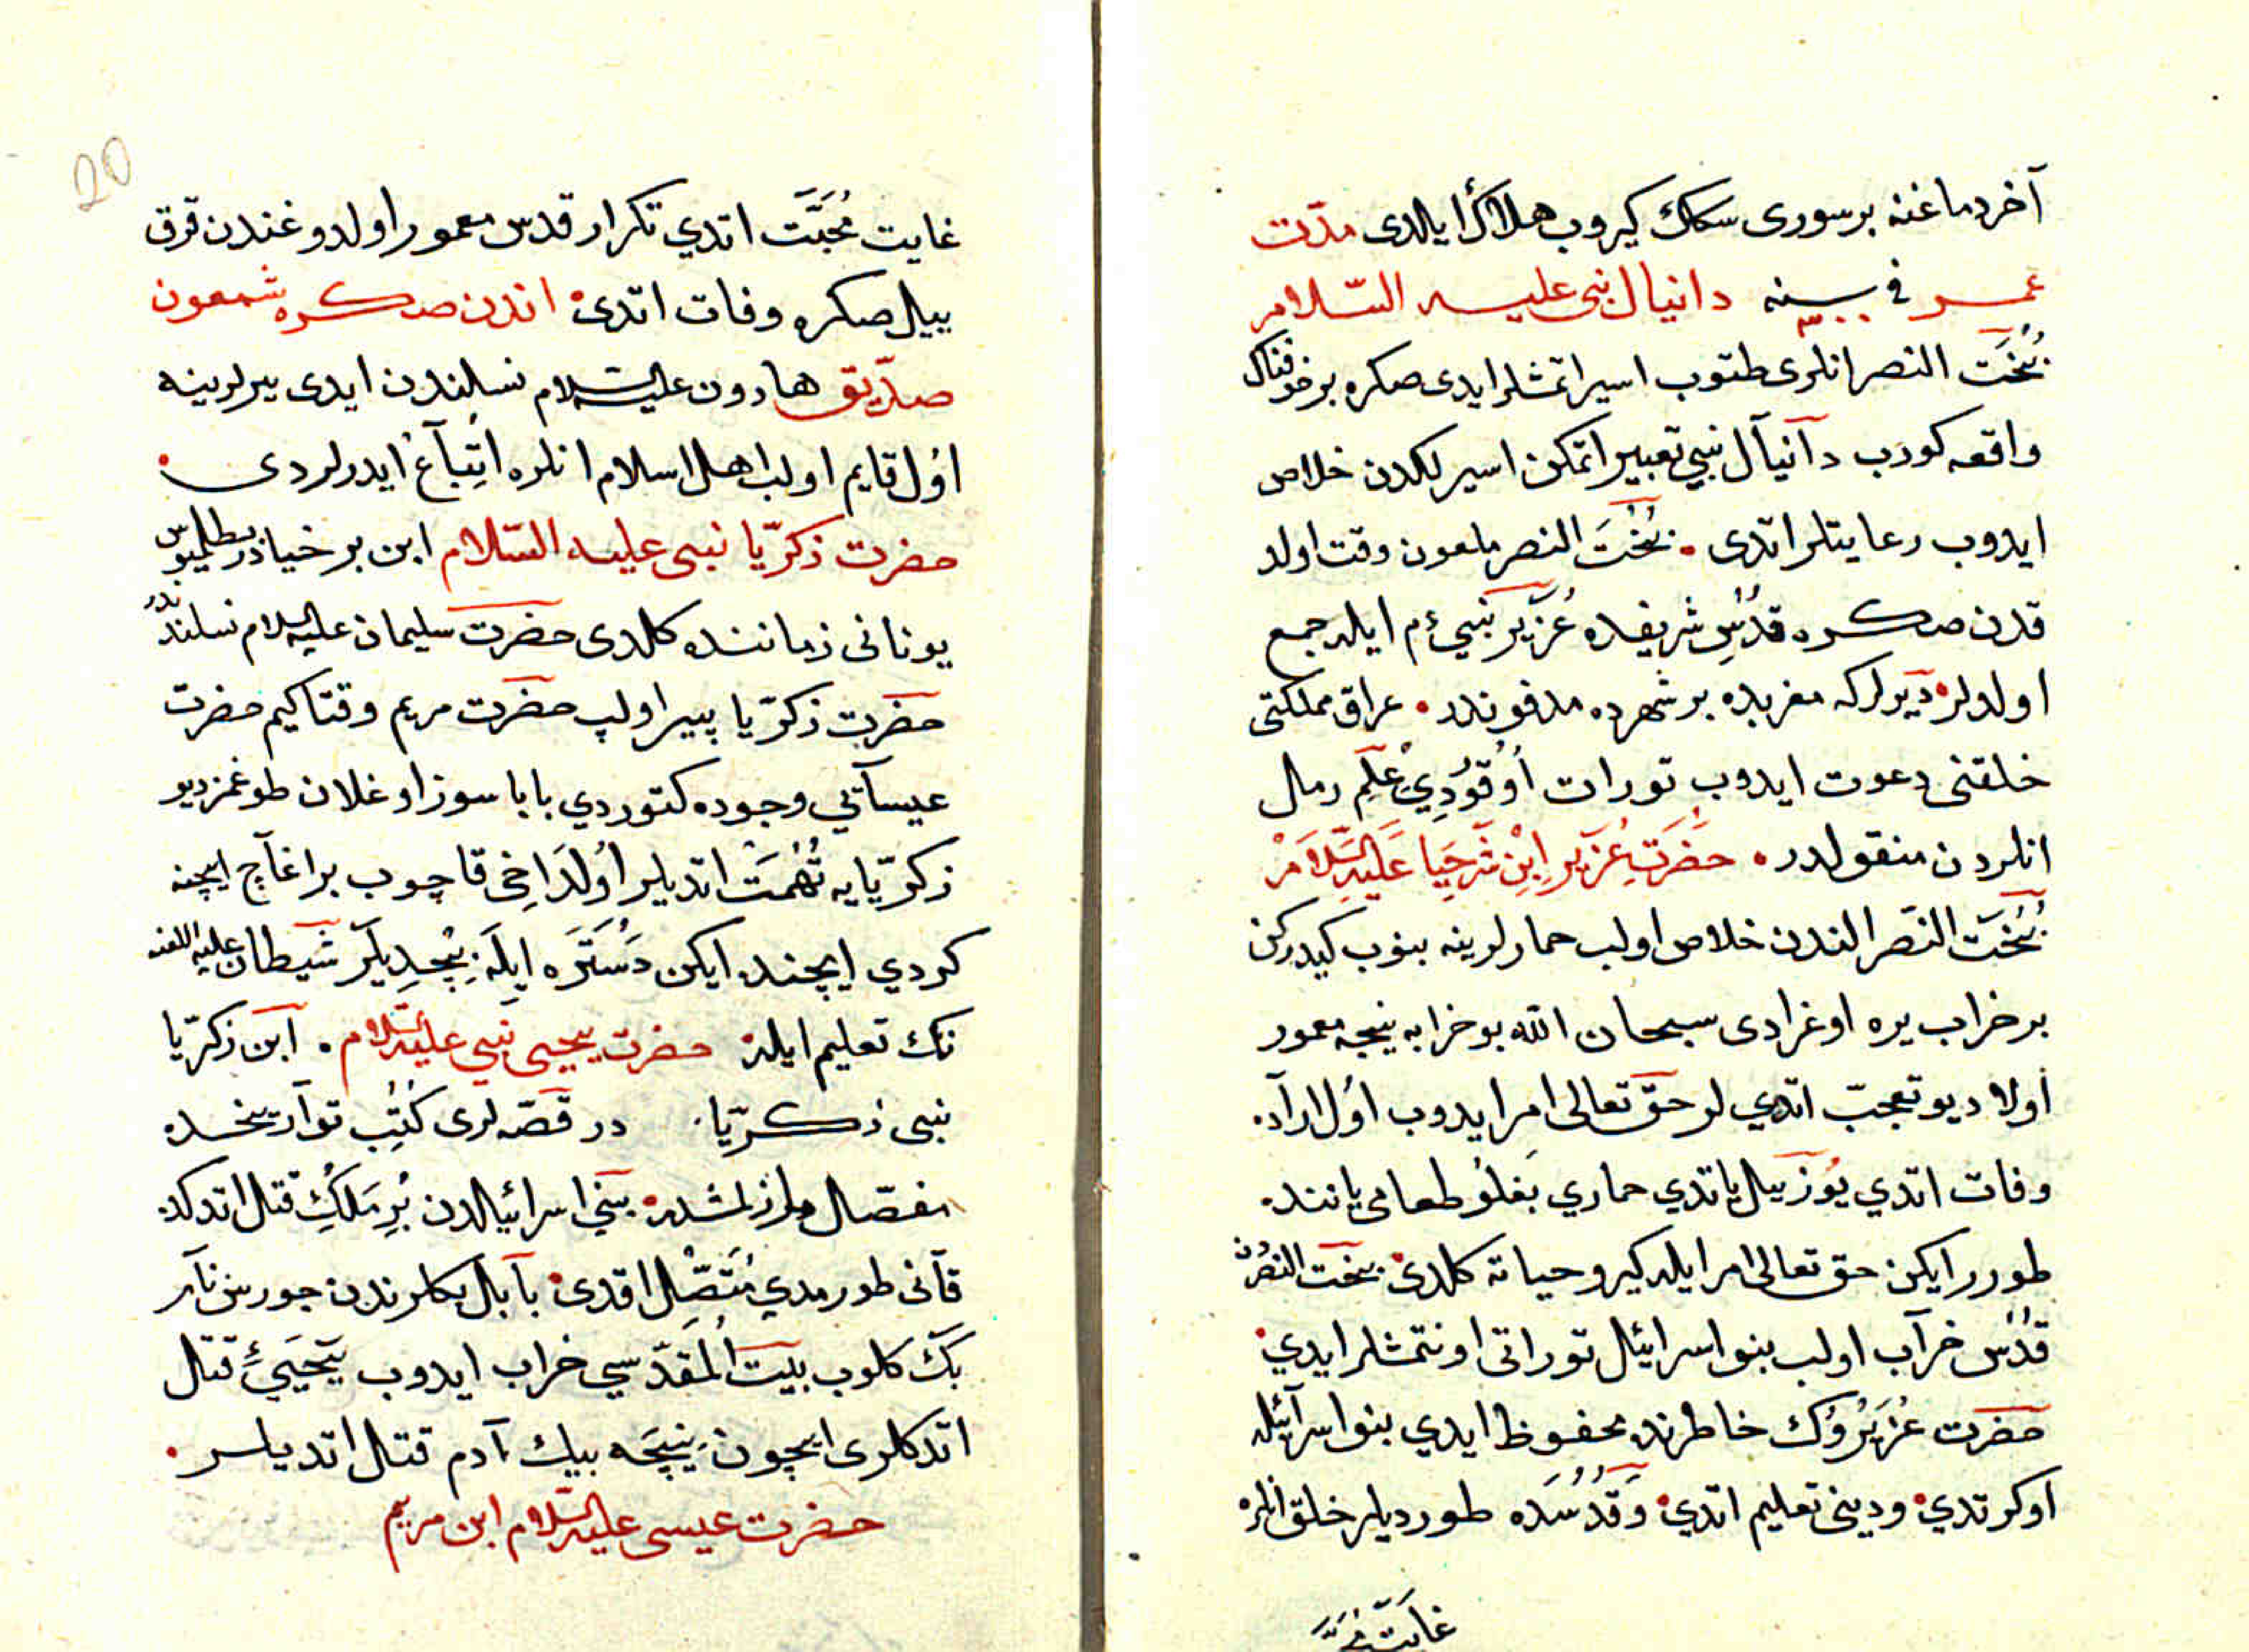 آخر دماغنه بر سوری سكك كیروب هلاك ایلدی مدّت
عمر فی سنه دانیال نبی علیه السّلام
بُخْتَ النصر انلری طتوب اسیر اتمشلر ایدی صكره بر خوفناك
واقعه كورب دآنیآل نبی تعبیر اتمكن اسیرلكدن خلاص
ایدوب رعایتلر اتدی • بُخْتَ النصر ملعون وقت اولد
قدن صكره قُدْسِ شریفده عُزَیْر نَبیٔ م ایله جمع
اولدلر • دیرلر كه مغربده بر شهرده مدفوندر • عراق مملكتی
خلقنی دعوت ایدوب تورات اُوقُودِیْ عِلْمِ رمال
انلردن منقولدر • حَضْرَتِ عُزَیْرِ اِبْنِ شَرْحِیَا عَلَیْهِ السَّلاَمْ
بُخْتَ النّصر الندن خلاص اولب حمارلرینه بنوب كیدركن
بر خراب یره اوغرادی سبحان الله بو خرابه نیجه معمور
اولا دیو تعجبّ اتدی لر حقّ تعالی امر ایدوب اوُل اراده
وفات اتدی یوُز ییل یاتدی حماری بغلوُ طعامی یاننده
طورر ایكن حق تعالی امر ایله كیرو حیاته كلدی • بخت النصردن
قُدْس خرآب اولب بنو اسرائیل توراتی اونتمشلر ایدی •
حضرت عُزَیْرُوك خاطرنده محفوظ ایدی بنو اسرآئیله
اوكرتدی • ودینی تعلیم اتدی • وَقُدُسْدَه طوردیلر خلق انلره
غایت مُحَبَّت
20
غایت مُحَبَّت اتدی تكرار قدس معمور اولدوغندن قرق
ییل صكره وفات اتدی • اندن صكره شمعون
صدّیق هارون علیه السلام نسلندن ایدی یرلرینه
اوُل قایم اولب اهل اسلام انلره اتِّبآعْ ایدرلردی •
حضرت زكرّیا نبی علیه السّلام ابن برخیادر بطلمیوس
یونانی زماننده كلدی حضرت سلیمان علیه السلام نسلندندر
حضرت زكرّیا پیر اولپ حضرت مریم وقتاكیم حضرت
عیسآیی وجوده كتوردی بابا سوز اوغلان طوغمز دیو
زكرّیایه تُهْمَتْ اتدیلر اوُلدَاخی قاچوب بر اغآچ ایچنه
كردی ایچنده ایكن دَسْتَرَه ایلَه بِچْدِیلَر شیطان علیه اللعنه
نك تعلیم ایله • حضرت یحیی نبی علیه السّلام • ابن زكرّیا
نبی زكرّیا • در قصّه لری كُتُبِ توآریخده
مفصّل یازلمشدر • بنی اسرائیلدن بُرِ مَلِكُ قتل اتدكده
قآنی طورمدی مُتَّصِلْ اقدی • بآبل بكلرندن جورس نآم
بك كلوب بیت المقدّسی خراب ایدوب یَحْیَیٔ قتل
اتدكلری ایچون نِیچَه بیك آدم قتل اتدیلر •
حضرت عیسی علیه السّلام ابن مریم